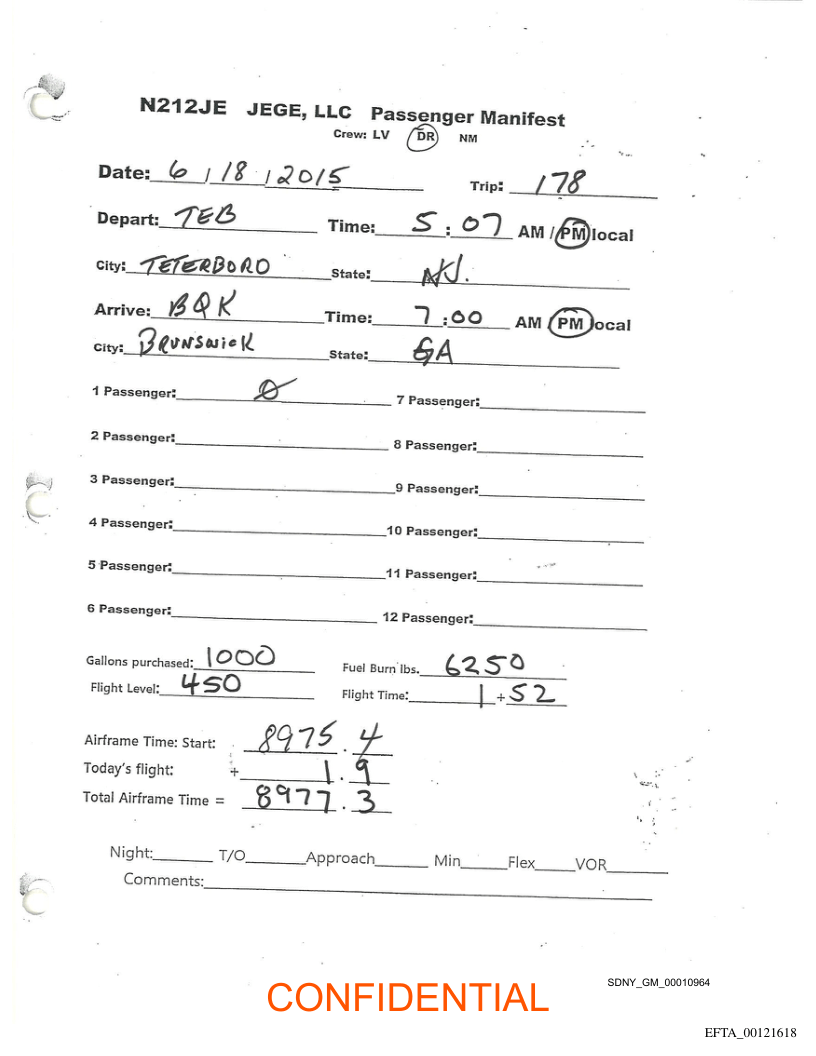 N212JE JEGE, LLC Passenger Manifest
Crew: LV DR NM
Date: 6 / 18 / 2015 Trip: 178
Depart: TEB Time: 5 : 07 AM / PM local
City: TETERBORO State: NJ.
Arrive: BQK Time: 7 : 00 AM / PM local
City: BRUNSWICK State: GA
1 Passenger: 0 7 Passenger:
2 Passenger: 8 Passenger:
3 Passenger: 9 Passenger:
4 Passenger: 10 Passenger:
5 Passenger: 11 Passenger:
6 Passenger: 12 Passenger:
Gallons purchased: 1000 Fuel Burn lbs. 6250
Flight Level: 450 Flight Time: 1 + 52
Airframe Time: Start: 8975 . 4
Today's flight: + 1 . 9
Total Airframe Time = 8977 . 3
Night: T/O Approach Min Flex VOR
Comments:
SDNY_GM_00010964
CONFIDENTIAL
EFTA_00121618